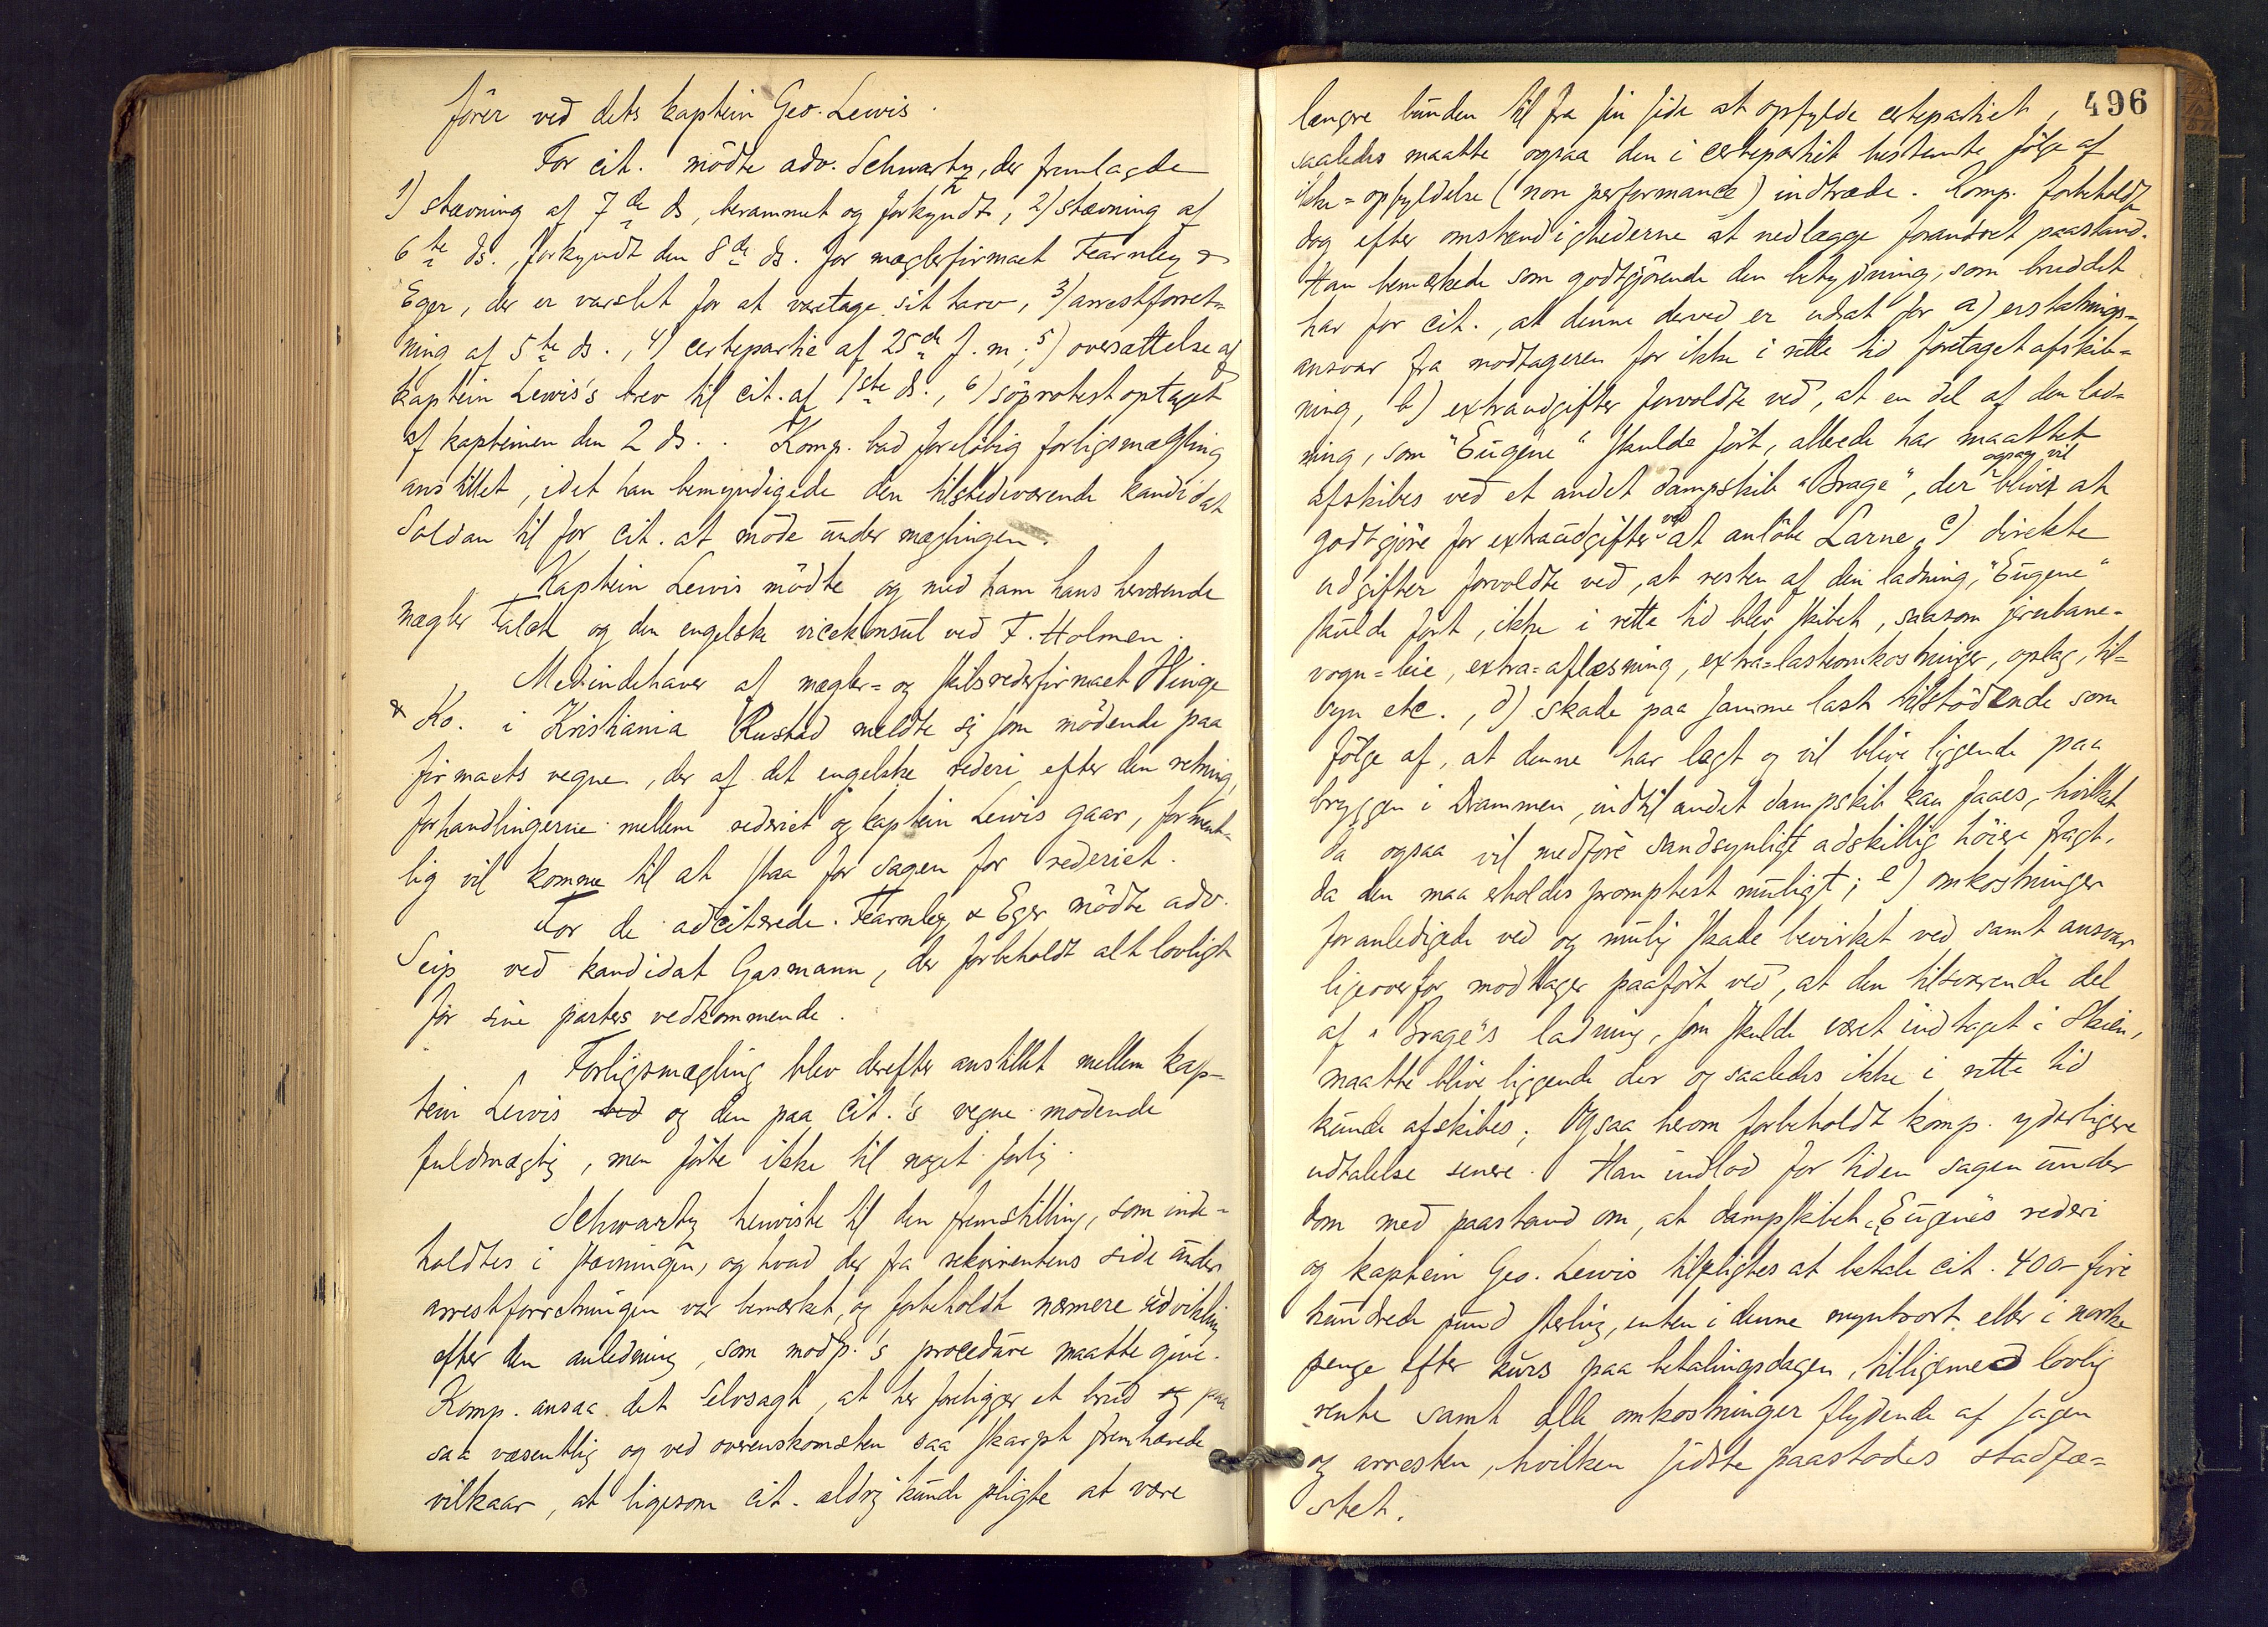 fører ved dets kaptein Geo. Lewis.
For cit. mødte adv. Schwartz, der fremlagde
1) stævning af 7de ds, berammet og forkyndt, 2) stævning af
6te ds., forkyndt den 8de ds. for mæglerfirmaet Fearnley &
Eger, der er varslet for at varetage sit tarv, 3) arrestforret-
ning af 5te ds., 4) certepartie af 25de f. m., 5) oversættelse af
kaptein Lewis's brev til cit. af 1ste ds., 6) søprotest optaget
af kapteinen den 2 ds.. Komp. bad foreløbig forligsmægling
anstillet, idet han bemyndigede den tilstedeværende kandidat
Soldan til for cit. at møde under mæglingen.
Kaptein Lewis mødte og med ham hans herværende
mægler Falck og den engelske vicekonsul ved F. Holmen.
Medindehaver af mægler= og skibsrederfirmaet Hinge
& Ko. i Kristiania Rustad meldte sig som mødende paa
firmaets vegne, der af det engelske rederi efter den retning,
forhandlingerne mellem rederiet og kaptein Lewis gaar, forment-
lig vil komme til at staa for sagen for rederiet.
For de adciterede Fearnley & Eger mødte adv.
Seip ved kandidat Gasmann, der forbeholdt alt lovligt
for sine parters vedkommende.
Forligsmægling blev derefter anstillet mellem kap-
tein Lewis ved og den paa cit.'s vegne mødende
fuldmægtig, men førte ikke til noget forlig.
Schwartz henviste til den fremstilling, som inde-
holdtes i stævningen, og hvad der fra rekvirentens side under
arrestforretningen var bemærket, og forbeholdt nærmere udvikling
efter den anledning, som modp.'s procedure maatte give.
Komp. ansaa det selvsagt, at her foreligger et brud og paa
saa væsentlig og ved overenskomsten saa skarpt fremhævede
vilkaar, at ligesom cit. aldrig kunde pligte at være
496
længre bunden til fra sin side at opfylde certepartiet,
saaledes maatte ogsaa den i certepartiet bestemte følge af
ikke=opfyldelse (non performance) indtræde. Komp. forbeholdt
dog efter omstændighederne at nedlægge forandret paastand.
Han bemærkede som godtgjørende den betydning, som bruddet
har for cit., at denne derved er udsat for a) erstatnings-
ansvar fra modtageren for ikke i rette tid foretaget afskib-
ning, b) extraudgifter forvoldte ved, at en del af den lad-
ning, som "Eugene" skulde ført, allerede har maattet
afskibes ved et andet dampskib "Brage", der ogsaa vil blive at
godtgjøre for extraudgifter ved at anløbe Larne, c) direkte
udgifter forvoldte ved, at resten af den ladning, "Eugene"
skulde ført, ikke i rette tid blev skibet, saasom jernbane-
vogn=leie, extra=aflæsning, extra=lasteomkostninger, oplag, til-
syn etc., d) skade paa samme last tilstødende som
følge af, at denne har lagt og vil blive liggende paa
bryggen i Drammen, indtil andet dampskib kan faaes, hvilket
da ogsaa vil medføre sandsynligt adskillig høiere fragt,
da den maa erholdes promptest muligt; e) omkostninger
foranledigede ved og mulig skade bevirket ved samt ansvar
ligeoverfor modtager paaført ved, at den tilsvarende del
af "Brage"s ladning, som skulde været indtaget i Skien,
maatte blive liggende der og saaledes ikke i rette tid
kunde afskibes; Ogsaa herom forbeholdt komp. yderligere
udtalelse senere. Han indlod for tiden sagen under
dom med paastand om, at dampskibet "Eugene"s rederi
og kaptein Geo. Lewis tilpligtes at betale cit. 400- fire
hundrede pund sterling, enten i denne myntsort eller i norske
penge efter kurs paa betalingsdagen, tilligemed lovlig
rente samt alle omkostninger flydende af sagen
og arresten, hvilken sidste paastodes stadfæ-
stet.